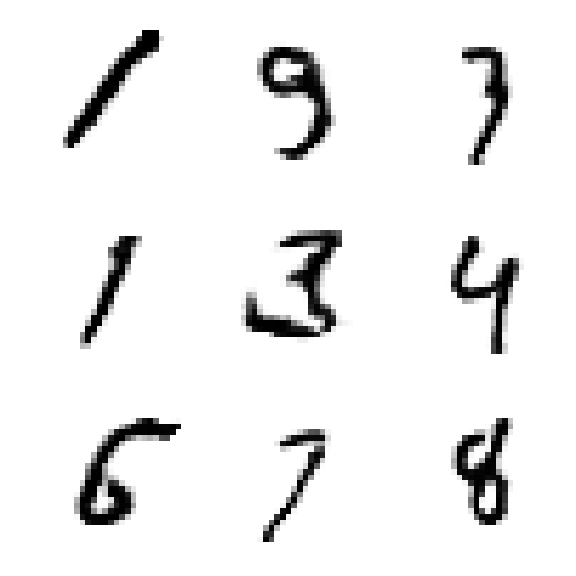 1 9 7
1 3 4
6 7 8